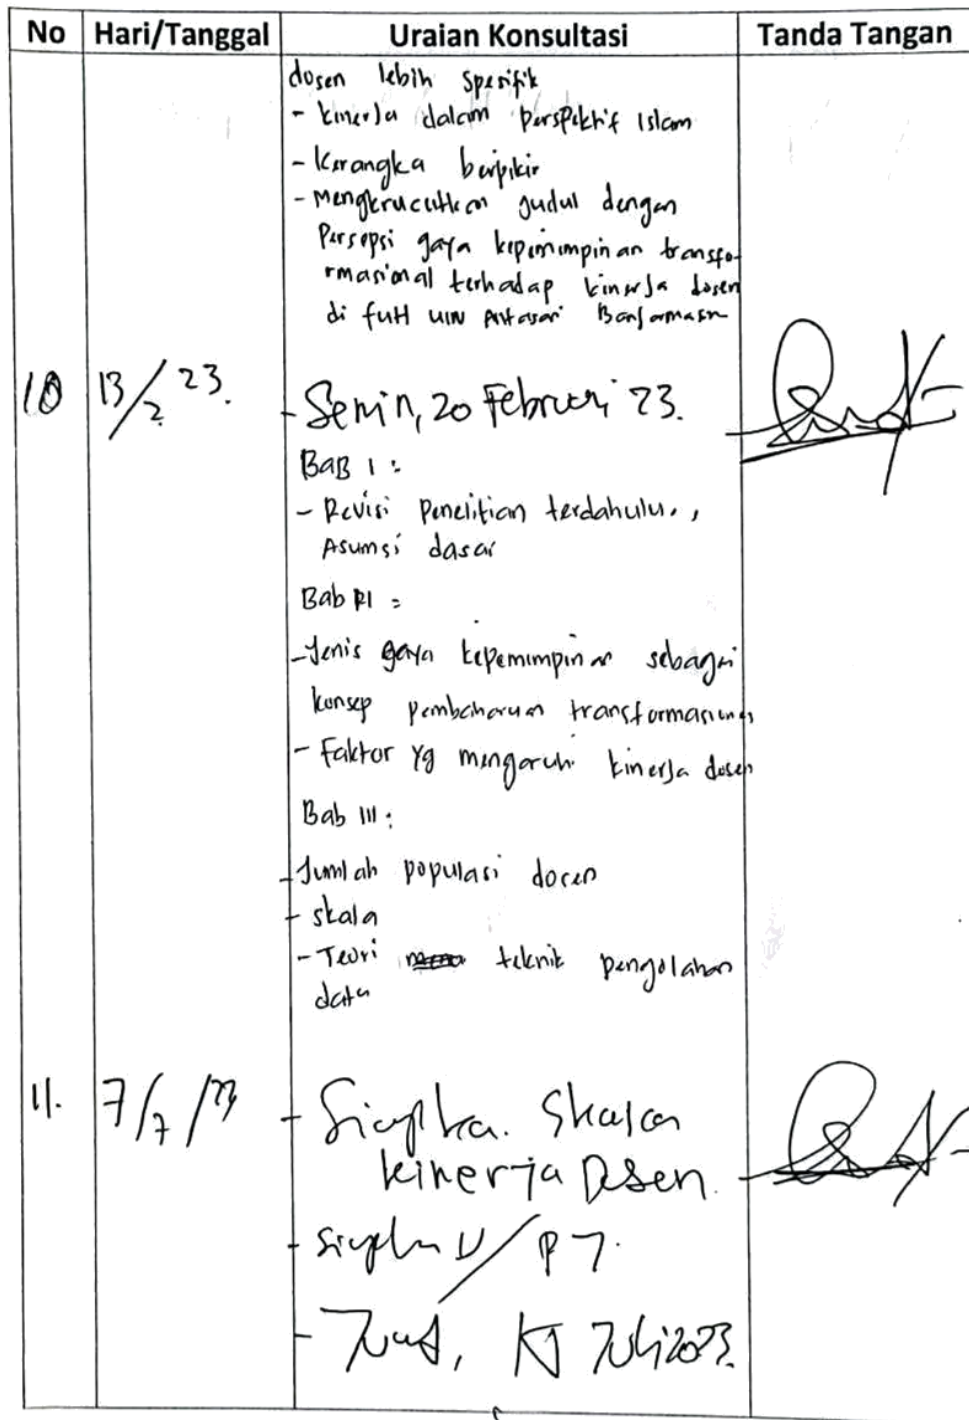 No Hari/Tanggal Uraian Konsultasi Tanda Tangan
dosen lebih spesifik
- kinerja dalam perspektif islam
- kerangka berpikir
- Mengkrucutkan judul dengan
Persepsi gaya kepemimpinan transfo-
rmasional terhadap kinerja dosen
di FUH UIN Antasari Banjarmasin
10 13/2 23.
- Senin, 20 Februari 23.
BAB I :
- Revisi Penelitian terdahulu. ,
Asumsi dasar
Bab II :
- Jenis gaya kepemimpinan sebagai
konsep pembaharuan transformasional
- Faktor yg mengaruhi kinerja dosen
Bab III :
- Jumlah populasi dosen
- skala
- Teori teknik pengolahan
data
11. 7/7/23 - Siapka. Skala
kinerja Dosen.
-
- Juli 2023.